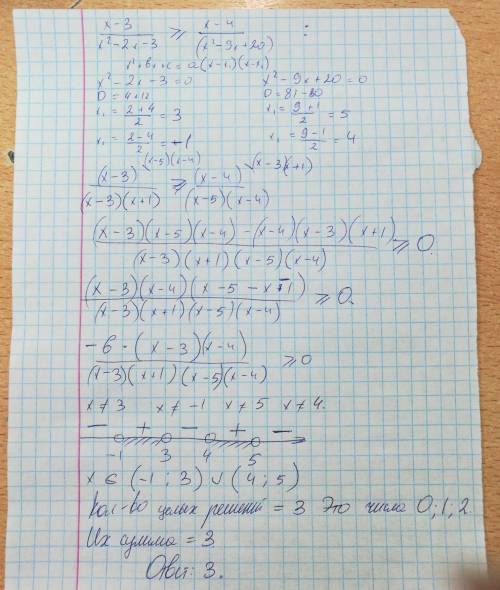 x-3 / x²-2x-3 ≥ x-4 / (x²-9x+20) :
x²+bx+c = a(x-x₁)(x-x₂)
x²-2x-3=0 x²-9x+20=0
D = 4+12 D = 81-80
x₁ = 2+4 / 2 = 3 x₁ = 9+1 / 2 = 5
x₁ = 2-4 / 2 = -1 x₁ = 9-1 / 2 = 4
(x-5)(x-4) (x-3)(x+1)
(x-3) / (x-3)(x+1) ≥ (x-4) / (x-5)(x-4)
(x-3)(x-5)(x-4) - (x-4)(x-3)(x+1) / (x-3)(x+1)(x-5)(x-4) ≥ 0.
(x-3)(x-4)(x-5-x-1) / (x-3)(x+1)(x-5)(x-4) ≥ 0.
-6·(x-3)(x-4) / (x-3)(x+1)(x-5)(x-4) ≥ 0
x≠3 x≠-1 x≠5 x≠4.
- + - + -
-1 3 4 5
x ∈ (-1; 3) ∪ (4; 5)
Кол-во целых решений = 3 Это числа 0; 1; 2.
Их сумма = 3
Ответ: 3.